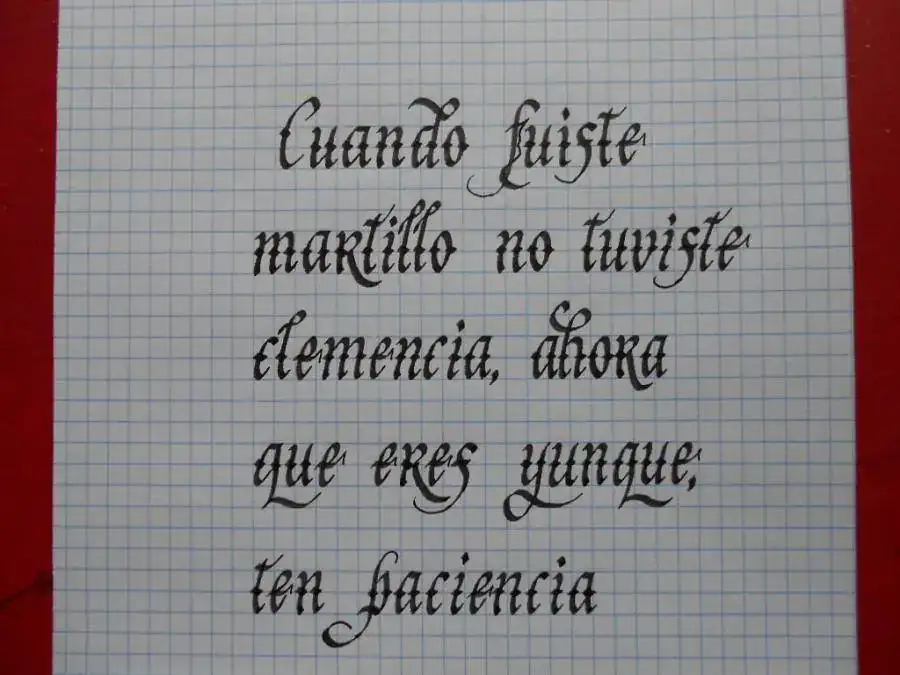 Cuando fuiste
martillo no tuviste
clemencia, ahora
que eres yunque,
ten paciencia